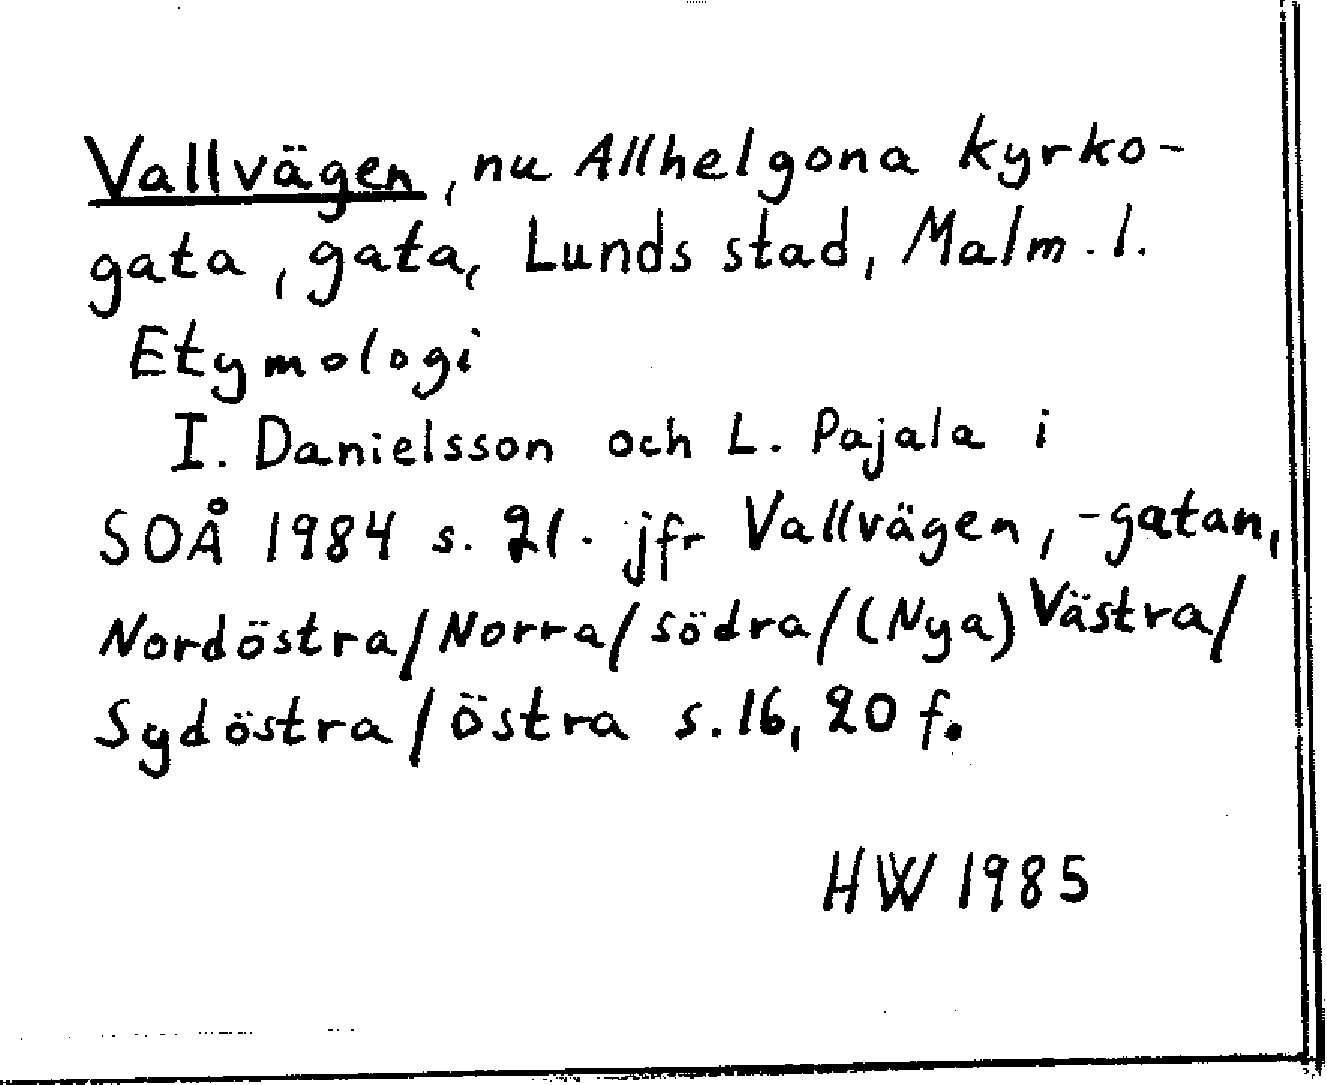 Vallvägen, nu Allhelgona kyrko-
gata, gata, Lunds stad, Malm. l.
Etymologi
I. Danielsson och L. Pajala i
SOÅ 1984 s. 21. jfr Vallvägen, -gatan,
Nordöstra/Norra/södra/(Nya) Västra/
Sydöstra/östra s. 16, 20 f.
HW 1985